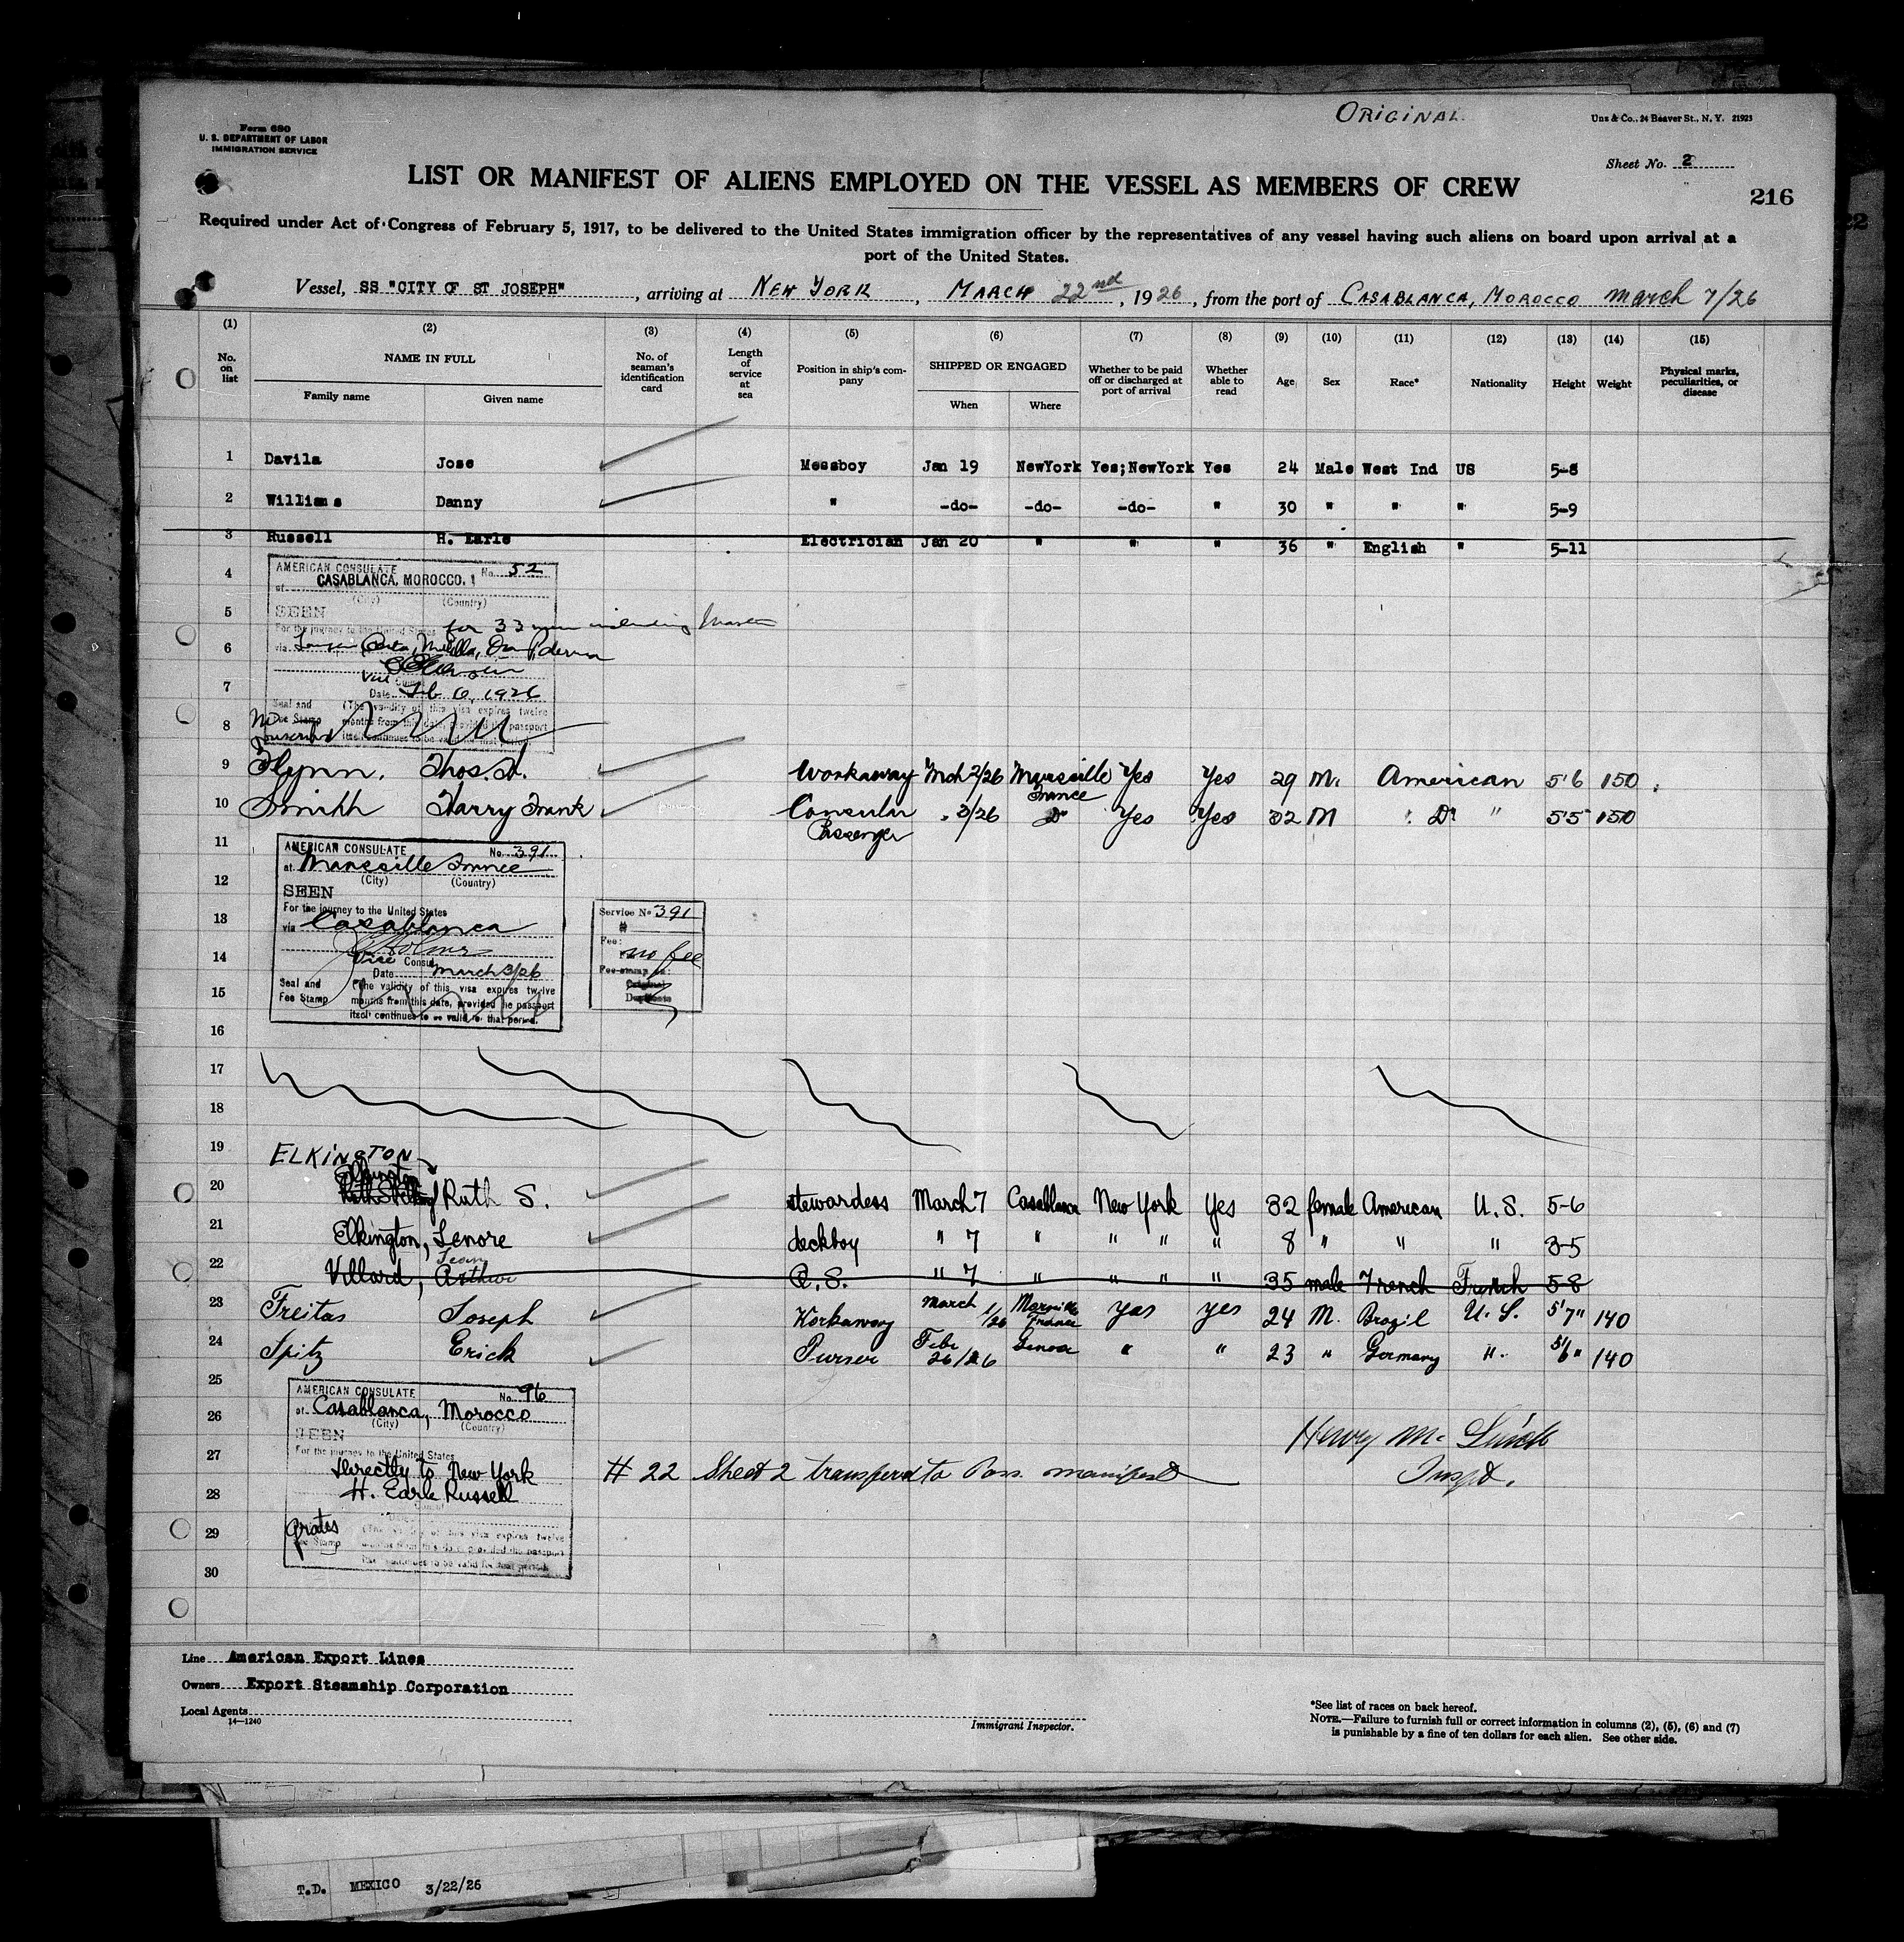 ORIGINAL.
Form 680
U. S. DEPARTMENT OF LABOR
IMMIGRATION SERVICE
Uns & Co., 24 Beaver St., N. Y. 21923
Sheet No. 2
LIST OR MANIFEST OF ALIENS EMPLOYED ON THE VESSEL AS MEMBERS OF CREW
216
Required under Act of Congress of February 5, 1917, to be delivered to the United States immigration officer by the representatives of any vessel having such aliens on board upon arrival at a
port of the United States.
Vessel, SS "CITY OF ST JOSEPH", arriving at NEW YORK, MARCH 22nd, 1926, from the port of CASABLANCA, MOROCCO march 7/26
(1) (2) (3) (4) (5) (6) (7) (8) (9) (10) (11) (12) (13) (14) (15)
No. on list
NAME IN FULL
Family name Given name
No. of seaman's identification card
Length of service at sea
Position in ship's company
SHIPPED OR ENGAGED
When Where
Whether to be paid off or discharged at port of arrival
Whether able to read
Age Sex Race* Nationality Height Weight
Physical marks, peculiarities, or disease
1 Davila Jose Messboy Jan 19 NewYork Yes;NewYork Yes 24 Male West Ind US 5-8
2 Williams Danny " -do- -do- -do- " 30 " " " 5-9
3 Russell H. Earle Electrician Jan 20 " " " 36 " English " 5-11
4
AMERICAN CONSULATE No. 52
at CASABLANCA, MOROCCO.
(City) (Country)
5
SEEN
For the journey to the United States for 33 men including Master
6
via
7
Vice Consul
Date Feb 6, 1926
8
Seal and Fee Stamp
(The validity of this visa expires twelve
months from this date, provided the passport
itself continues to be valid for that period.
No
9 Flynn. Thos. Workaway Mch 2/26 Marseille France Yes Yes 29 M. American 5'6 150
10 Smith Harry Frank Consular Passenger " 3/26 Do Yes Yes 32 M " Do " 5'5 150
11
AMERICAN CONSULATE No. 391
at Marseille France
(City) (Country)
12
SEEN
For the journey to the United States
13
via Casablanca
Service No 391
#
Fee: no fee
Fee stamp on:
Original
Duplicate
14
Vice Consul
Date March 3/26
15
Seal and Fee Stamp
(The validity of this visa expires twelve
months from this date, provided the passport
itself continues to be valid for that period.
16
17
18
19 ELKINGTON
20 Elkington Ruth S. stewardess March 7 Casablanca New York Yes 32 female American U. S. 5-6
21 Elkington, Lenore deckboy " 7 " " " " 8 " " " 3-5
22 Villard, Arthur Jean O.S. " 7 " " " " 35 male French French 5-8
23 Freitas Joseph Workaway March 1/26 Marseille France yes yes 24 M. Brazil U. S. 5'7" 140
24 Spitz Erick Purser Febr 26/26 Genoa " " 23 " Germany " 5'6" 140
25
AMERICAN CONSULATE No. 96
26
at Casablanca, Morocco
(City) (Country)
SEEN
27
For the journey to the United States
Directly to New York
28
H. Earle Russell
29
gratis
Fee Stamp
(The validity of this visa expires twelve
months from this date provided the passport
itself continues to be valid for that period.
30
# 22 Sheet 2 transferred to Pass. manifest
Henry Mc
Inspt.
Line American Export Lines
Owners Export Steamship Corporation
Local Agents
14—1240
Immigrant Inspector.
*See list of races on back hereof.
NOTE.—Failure to furnish full or correct information in columns (2), (5), (6) and (7)
is punishable by a fine of ten dollars for each alien. See other side.
T.D. MEXICO 3/22/26